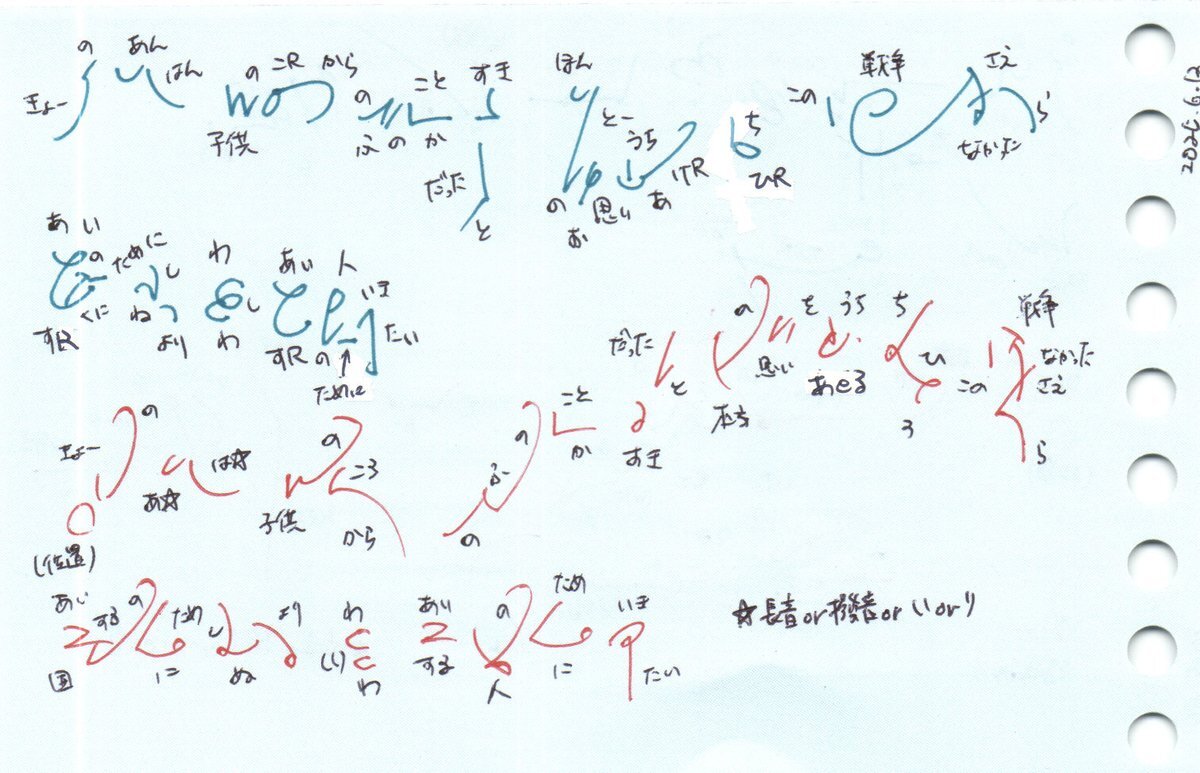 きょー の あん はん 子供 の こR から ふ の の か こと すき だった と ほん とー の お 思い うち あ けR ち ひR この 戦争 なかった さえ ら
2025.6.12
あい すR の くに ために し ね より わ し わ あい すR 人 の ために いき たい
きょー の (位置) あ☆ は☆ 子供 の ころ から の ふ の か こと すき だった と 本当 の 思い を うち あせる ち ひ ろ この 戦争 なかった さえ ら
あい 国 する の ため に し ぬ より わ (し) わ あい する 人 の ため に いき たい
☆長音or撥音orいorり